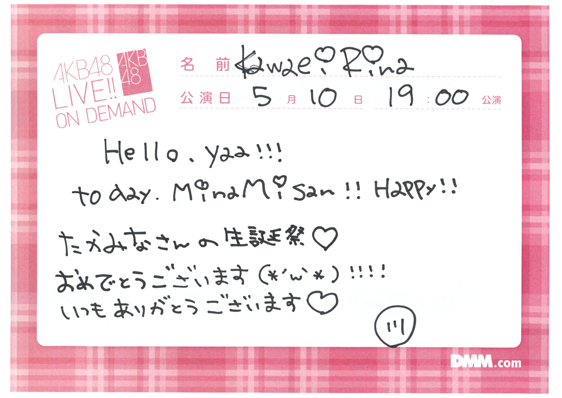 AKB48
LIVE!!
ON DEMAND
AKB
48
名前 Kawaei Rina
公演日 5月10日 19:00公演
Hello. yaa!!!
today. MinaMi san!! Happy!!
たかみなさんの生誕祭♡
おめでとうございます(*´ω`*)!!!!
いつもありがとうございます♡
川
DMM.com